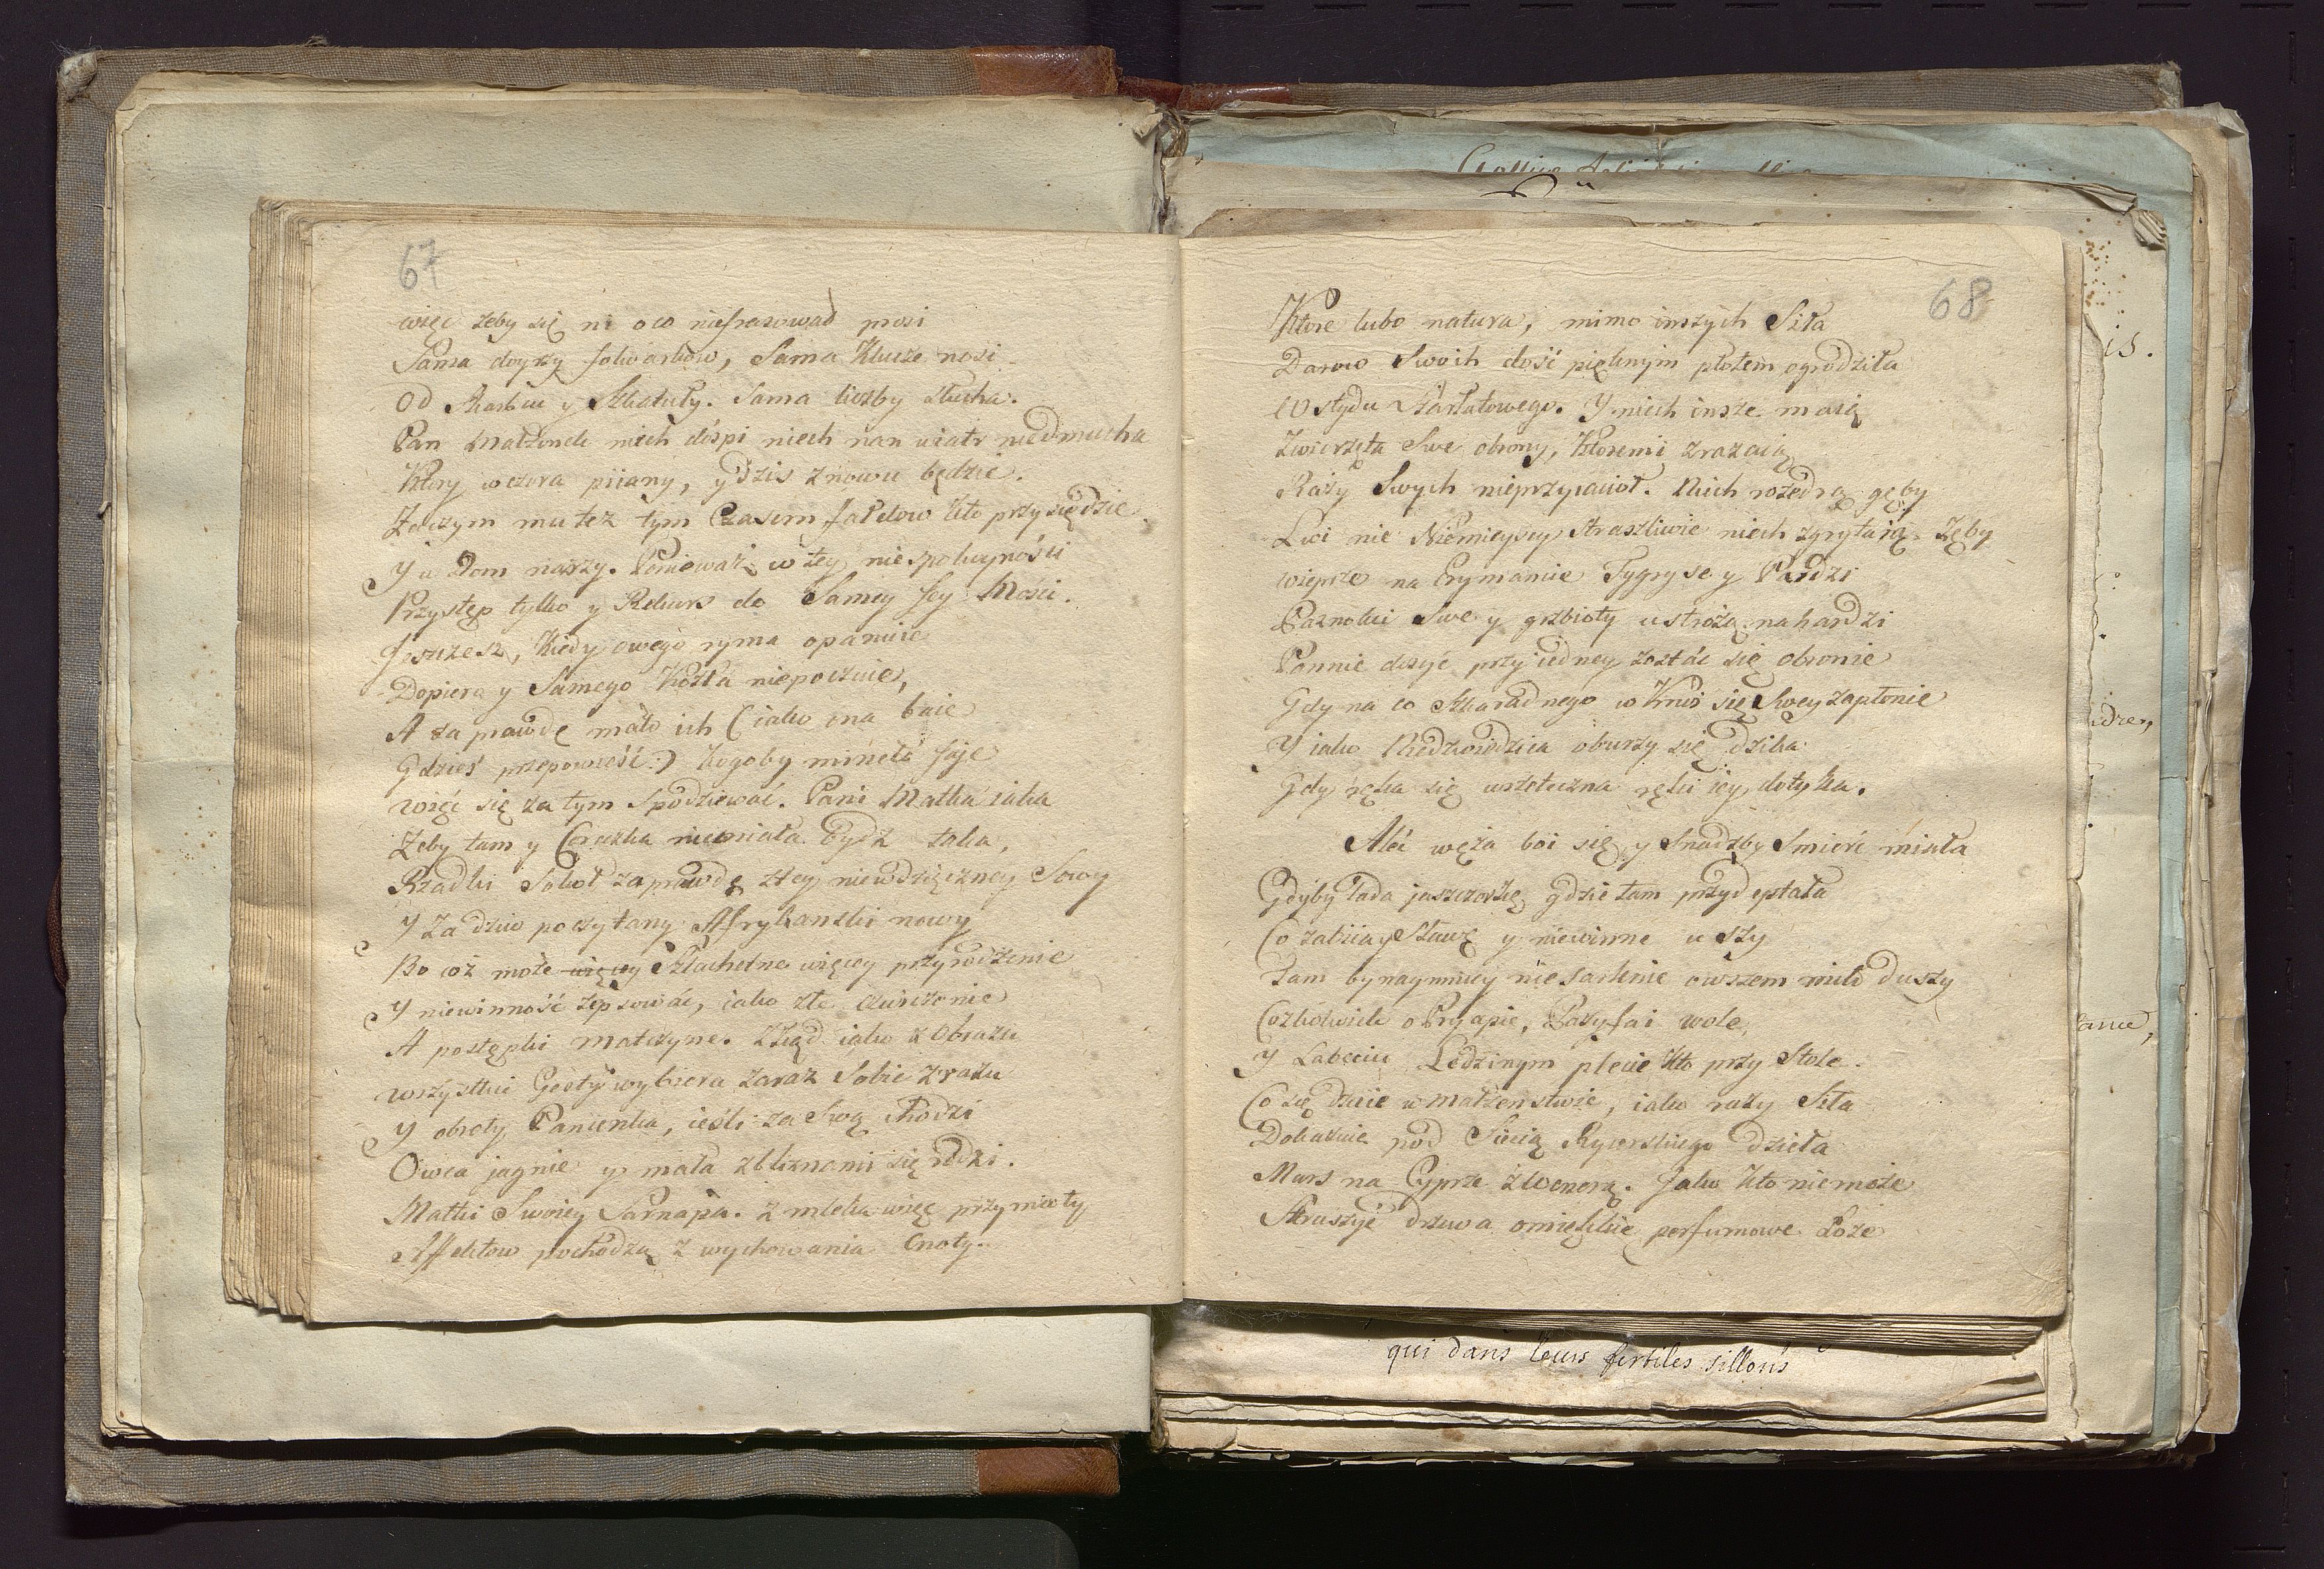 67
więc żeby się ni oco niefrasował prosi
Sama doyrzy folwarkow, Sama Klucze nosi
Od Skarbcu y Szkatuły. Sama liczby słucha.
Pan Małżonek niech dośpi niech nan wiatr niedmucha
Ktory wczora piiany, y dzis znowu będzie.
Zaczym mu też tym Czasem fałdow kto przysiędzie
Y u Dom naszy. Ponieważ w tey niespokoyności
Przystęp tylko y Rekurs do Samey Jey Mości.
Jeszczesz, kiedy owego ryma opanuie
Dopiero y Samego Kozła niepoczuie,
A zaprawdę mało ich (iako ma baie
Gdzieś przepowieść:) kogoby minęło jaje
więc się zatym spodziewać. Pani Matka iaka
Żeby tam y Coruzka niemiała bydź taka,
Rzadki Sokoł zaprawdę złey niewdzięczney Sowy
Y za dziw poczytany Afrykanski nowy
Bo coż może więcey Szlachetne więcey przyrodzenie
Y niewinność zepsować, iako złe ćwiczenie
A postępki matczyne. Zkąd iako z Obrazu
wszystkie Gesty wybiera zaraz Sobie zrazu
Y obroty Panienka, ieśli za Swą chodzi
Owca jagnie y mała zbliznami się rodzi.
Matki Swoiey Sarnapa. z mleka więc przymioty
Affektow pochodzą z wychowania Cnoty.
68
Ktore lubo natura, mimo inszych Siła
Darow Swoich dość pięknym płotem ogrodziła
Wstydu Szarłatowego. Y niech insze maią
Zwierzęta Swe obrony, Ktoremi zrażaią
Razy Swych nieprzyiacioł. Niech rozedrą gęby
Lwi nie Niemieyscy straszliwie niech zgrytaią Zęby
wieprze na Erymancie Tygrysy y Pardzi
Paznokci Swe y grzbioty ustrożą nahardzi
Pannie dosyć przy iedney zostać się obronie
Gdy na co szkaradnego w Krwi się Swey zapłonie
Y iako Niedzwiedzica oburzy się dzika
Gdy ręka się wszeteczna ręki iey dotyka.
Aleć węża boi się y snadzby Smierć miała
Gdyby lada jaszczorkę gdzie tam przydeptała
Co zabiiay Sławę y niewinne uszy
Tam bynaymniey niesarknie owszem miło duszy
Cozkolwiek o Pryapie, Pazyfai wole,
Y Łabęciu Ledzinym plecie kto przy Stole.
Co się dzieie w małżenstwie, iako razy Siła
Dokazuie pod Siecią Rycerskiego dzieła
Mars na Cyprze z Wenerą. Jako kto niemoże
Skruszyć drzewa omiękkie perfumowe Łoże
qui dans leurs fertiles sillons
is.